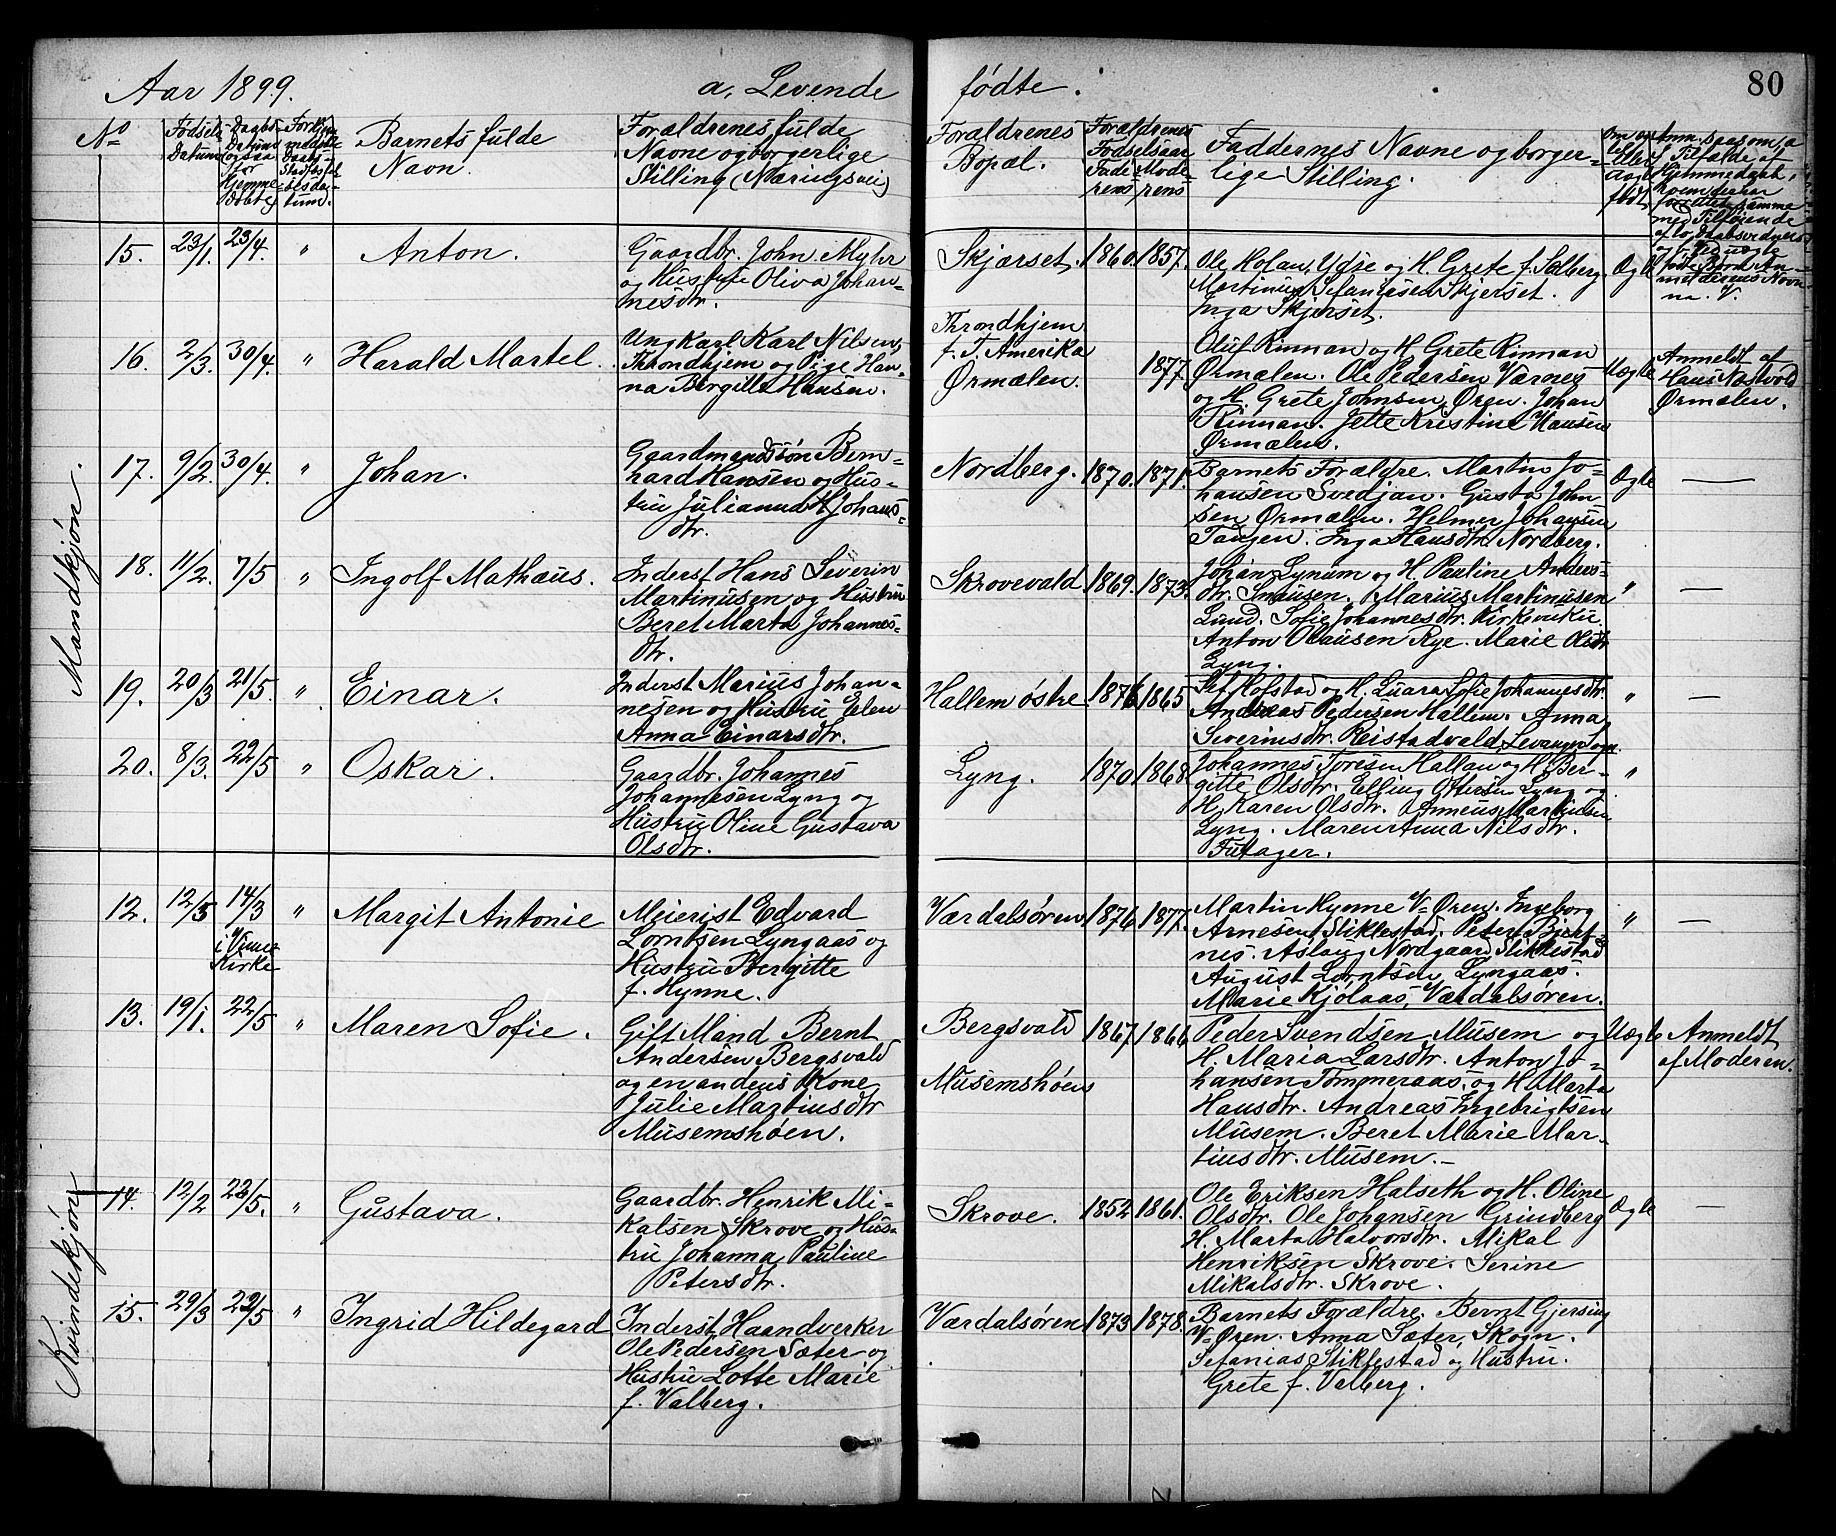 Aar 1899. a, Levende fødte. 80
No
Fødsels Datum
Daabs Datum
Barnets fulde
Navn.
Forældrenes fulde
Navne og borgerlige
Stilling (Næringsvei)
Forældrenes
Bopæl.
Forældrenes
Fødselsaar
Faderens
Moderens
Faddernes Navne og borger-
lige Stilling.
Mandkjøn.
15. 23/1. 23/4. " Anton.
Gaardbr. John Myhr
og Hustru Oliva Johan-
nesdtr.
Skjærset. 1860. 1857.
Ole Holan, Ydre og H. Grete f. Solberg.
Martinus Sefaniasen Skjerset.
Inga Skjerset.
Ægte
16. 2/3. 30/4. " Harald Martel.
Ungkarl Karl Nilsen,
Throndhjem og Pige Han-
na Bergitte Hansen.
Throndhjem
f. T. Amerika
Ørmælen.
1877
Oluf Rinnan og H. Grete Rinnan
Ørmælen. Ole Pedersen Værnes
og H. Grete Johnsen, Øren. Johan
Rinnan. Jette Kristine Hansen
Ørmælen.
Uægte
Anmeldt af
Hans Næstvold
Ørmælen.
17. 9/2. 30/4. " Johan.
Gaardmandssøn Bern-
hard Hansen og Hus-
tru Julianna H. Johans-
dtr.
Nordberg. 1870. 1871.
Barnets Forældre. Martin Jo-
hansen Svedjan. Gusta John
sen Ørmælen. Helmer Johansen
Tangen. Inga Hansdtr. Nordberg.
Ægte —
18. 11/2. 7/5 " Ingolf Mathæus.
Inderst Hans Severin
Martinusen og Hustru
Beret Marta Johannes-
dtr.
Skrovevald 1869. 1873.
Johan Lynum og H. Pauline Anders-
dtr. Snausen. Marius Martinusen
Lund. Sofie Johannesdtr. Kirkenku.
Anton Olausen Rye. Marie Olsdtr
Lyng.
" —
19. 20/3 21/5. " Einar.
Inderst Marius Johan-
nesen og Hustru Elen
Anna Einarsdtr.
Hallem østre. 1876 1865
Hofstad og H. Luara Sofie Johannesdtr.
Andreas Pedersen Hallem. Anna
Severinsdtr. Reistadvald, Levanger Sogn.
" —
20. 8/3. 22/5 " Oskar.
Gaardbr. Johannes
Johannesen Lyng og
Hustru Oline Gustava
Olsdtr.
Lyng. 1870. 1868
Johannes Toresen Hallan og H. Ber-
gitte Olsdtr. Elling Ottersen Lyng og
H. Karen Olsdtr. Anneus Martinsen
Lyng. Maren Anna Nilsdtr.
Futager.
"
Kvindekjøn
12. 12/5 14/3 " Margit Antonie
i Vinne
Kirke
Meierist Edvard
Lorntsen Lyngaas og
Hustru Bergitte
f. Hynne.
Værdalsøren 1876 1877.
Martin Hynne V-Øren. Ingeborg
Arnesen, Stiklestad. Peter Bjart-
nes. Aslaug Nordgaard, Stiklestad
August Lorntsen, Lyngaas.
Marie Kjølaas, Værdalsøren.
" —
13. 19/1. 22/5 " Maren Sofie.
Gift Mand Bernt
Andersen Bergsvald
og en andens Kone
Julie Martiusdtr
Musemshøen.
Bergsvald
Musemshøen
1867. 1866
Peder Svendsen Musem og
H. Maria Larsdtr. Anton Jo-
hansen Tømmeraas. og H. Marta
Hansdtr. Andreas Ingebrigtsen
Musem. Beret Marie Mar-
tiusdtr. Musem. —
Uægte
Anmeldt
af Moderen.
14. 12/2 22/5. " Gustava.
Gaardbr. Henrik Mi-
kalsen Skrove og Hus-
tru Johanna Pauline
Petersdtr.
Skrove. 1852 1861.
Ole Eriksen Halseth og H. Oline
Olsdtr. Ole Johansen Grindberg
H. Marta Halvorsdtr. Mikal
Henriksen Skrove. Serine
Mikalsdtr. Skrove.
Ægte —
15. 29/3 22/5 " Ingrid Hildegard
Inderst, Haandverker
Ole Pedersen Sæter og
Hustru Lotte Marie
f. Valberg.
Værdalsøren 1873 1878.
Barnets Forældre, Bernt Gjersing
V-Øren. Anna Sæter, Skogn.
Sefanias Stiklestad og Hustru.
Grete f. Valberg.